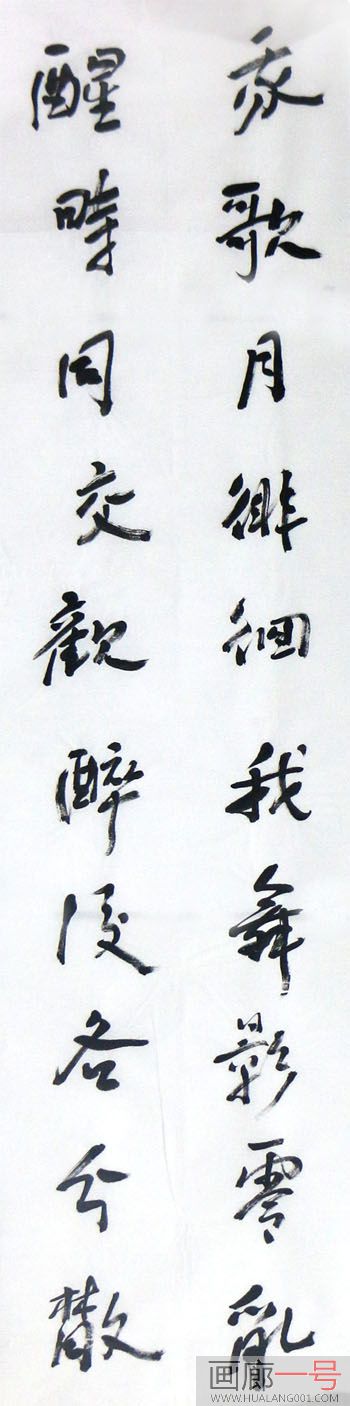 我歌月徘徊我舞影零亂
醒時同交觀醉後各分散
画廊一号
WWW.HUALANG001.COM